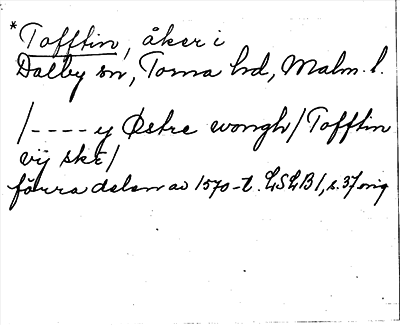 *Tofftin, åker i
Dalby sn, Torna hd, Malm. l.
/---- y Østre wongh/Tofftin
vij skt/
förra delen av 1570-t. LSLB 1, s. 37 orig